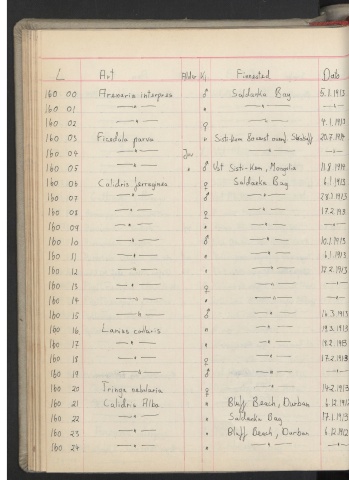 L Art Alder Kj. Finnested Dato
160 00 Arenaria interpres ♂ Saldanha Bay 5.1.1913
160 01 —"— " —"— —"—
160 02 —"— ♀ —"— 4.1.1913
160 03 Ficedula parva " Sisti-Kem
160 04 —"— Juv —"— —"—
160 05 —"— " ♂ Ust Sisti-Kem, Mongolia 11.8.1914
160 06 Calidris ferruginea ♀ Saldanha Bay 6.1.1913
160 07 —"— ♂ —"— 28.1.1913
160 08 —"— ♀ —"— 17.2.1913
160 09 —"— " —"— —"—
160 10 —"— ♂ —"— 10.1.1913
160 11 —"— " —"— 6.1.1913
160 12 —"— " —"— 12.2.1913
160 13 —"— ♀ —"— —"—
160 14 —"— " —"— —"—
160 15 —"— ♂ —"— 16.3.1913
160 16 Lanius collaris " —"— 19.3.1913
160 17 —"— " —"— 18.2.1913
160 18 —"— ♀ —"— 17.2.1913
160 19 —"— ♂ —"— —"—
160 20 Tringa nebularia ♀ —"— 14.2.1913
160 21 Calidris Alba " Bluff Beach, Durban 6.12.1912
160 22 —"— " Saldanha Bay 17.1.1913
160 23 —"— " Bluff Beach, Durban 6.12.1912
160 24 —"— " —"— —"—